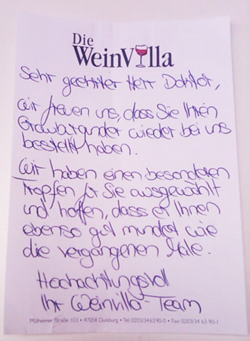 Die
WeinVilla
Sehr geehrter Herr Doktor,
wir freuen uns, dass Sie Ihren
Grauburgunder wieder bei uns
bestellt haben.
Wir haben einen besonderen
Tropfen für Sie ausgewählt
und hoffen, dass er Ihnen
ebenso gut mundet wie
die vergangenen Male.
Hochachtungsvoll
Ihr Weinvilla Team
Mülheimer Straße • 47058 Duisburg • Tel • Fax